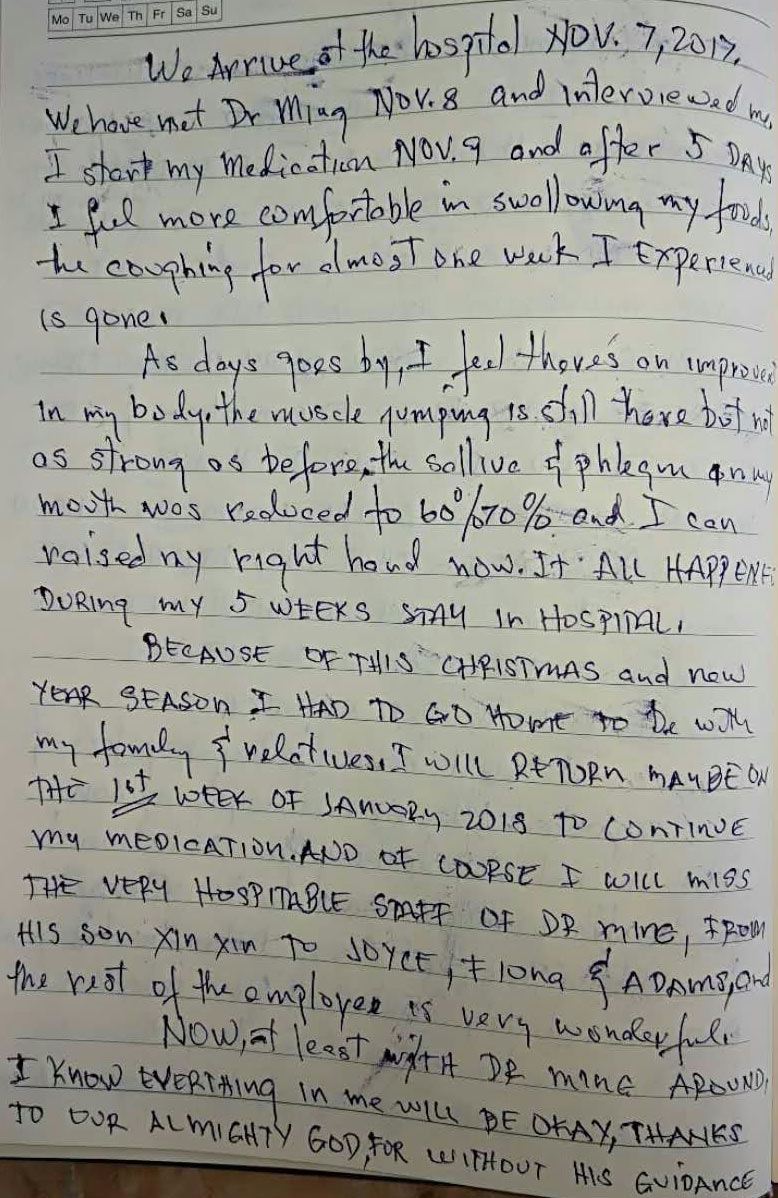 Mo Tu We Th Fr Sa Su
We Arrive at the hospital NOV. 7, 2017.
We have met Dr Ming NOV. 8 and interviewed me,
I start my Medication NOV. 9 and after 5 DAYS
I feel more comfortable in swallowing my foods,
the coughing for almost one week I Experienced
is gone.
As days goes by, I feel there's an improved
In my body. the muscle jumping is still there but not
as strong as before, the sallive & phlegm on my
mouth was reduced to 60%70% and I can
raised my right hand now. It ALL HAPPENE
DURING MY 5 WEEKS STAY IN HOSPITAL.
BECAUSE OF THIS CHRISTMAS and new
YEAR SEASON I HAD TO GO HOME to be with
my family & relatives. I WILL RETURN MAYBE ON
THE 1st WEEK OF JANUARY 2018 TO CONTINUE
MY MEDICATION. AND OF COURSE I WILL MISS
THE VERY HOSPITABLE STAFF OF DR MING, FROM
HIS SON XIN XIN TO JOYCE, & ADAMS, and
the rest of the employee is very wonderful.
NOW, at least WITH DR MING AROUND,
I KNOW EVERTHING IN me WILL BE OKAY, THANKS
TO OUR ALMIGHTY GOD, FOR WITHOUT HIS GUIDANCE